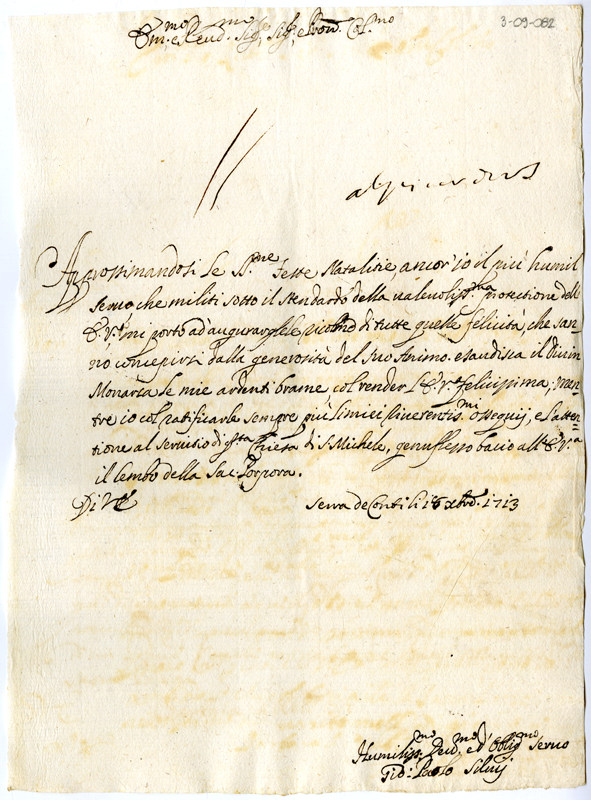 3-09-082
Em.mo e Reud.mo Sig.r, Sig.r, e Pron. Col.mo
Approssimandosi le S.me Feste Natalizie, ancor'io il più humil
seruo, che militi sotto il stendardo della ualeuoliss.ma protectione dell'
E. V.ra mi porto ad augurargliele ricolme di tutte quelle felicità, che san=
no concepirsi dalla generosità del Suo Animo. esaudisca il Diuin
Monarca le mie ardenti brame, col render l'E. V.ra felicissima, men=
tre io col ratificarle sempre più li miei riuerentis.mi ossequij, e l'atten=
tione al seruitio di q.sta Chiesa di S. Michele, genuflesso bacio all'E. V.ra
il lembo della Sac. Porpora.
Di V. E.
Serra de Conti li 16 Xbre. 1713
Humiliss.mo Deu.mo ed Oblig.mo Seruo
Gio: Paolo Siluij